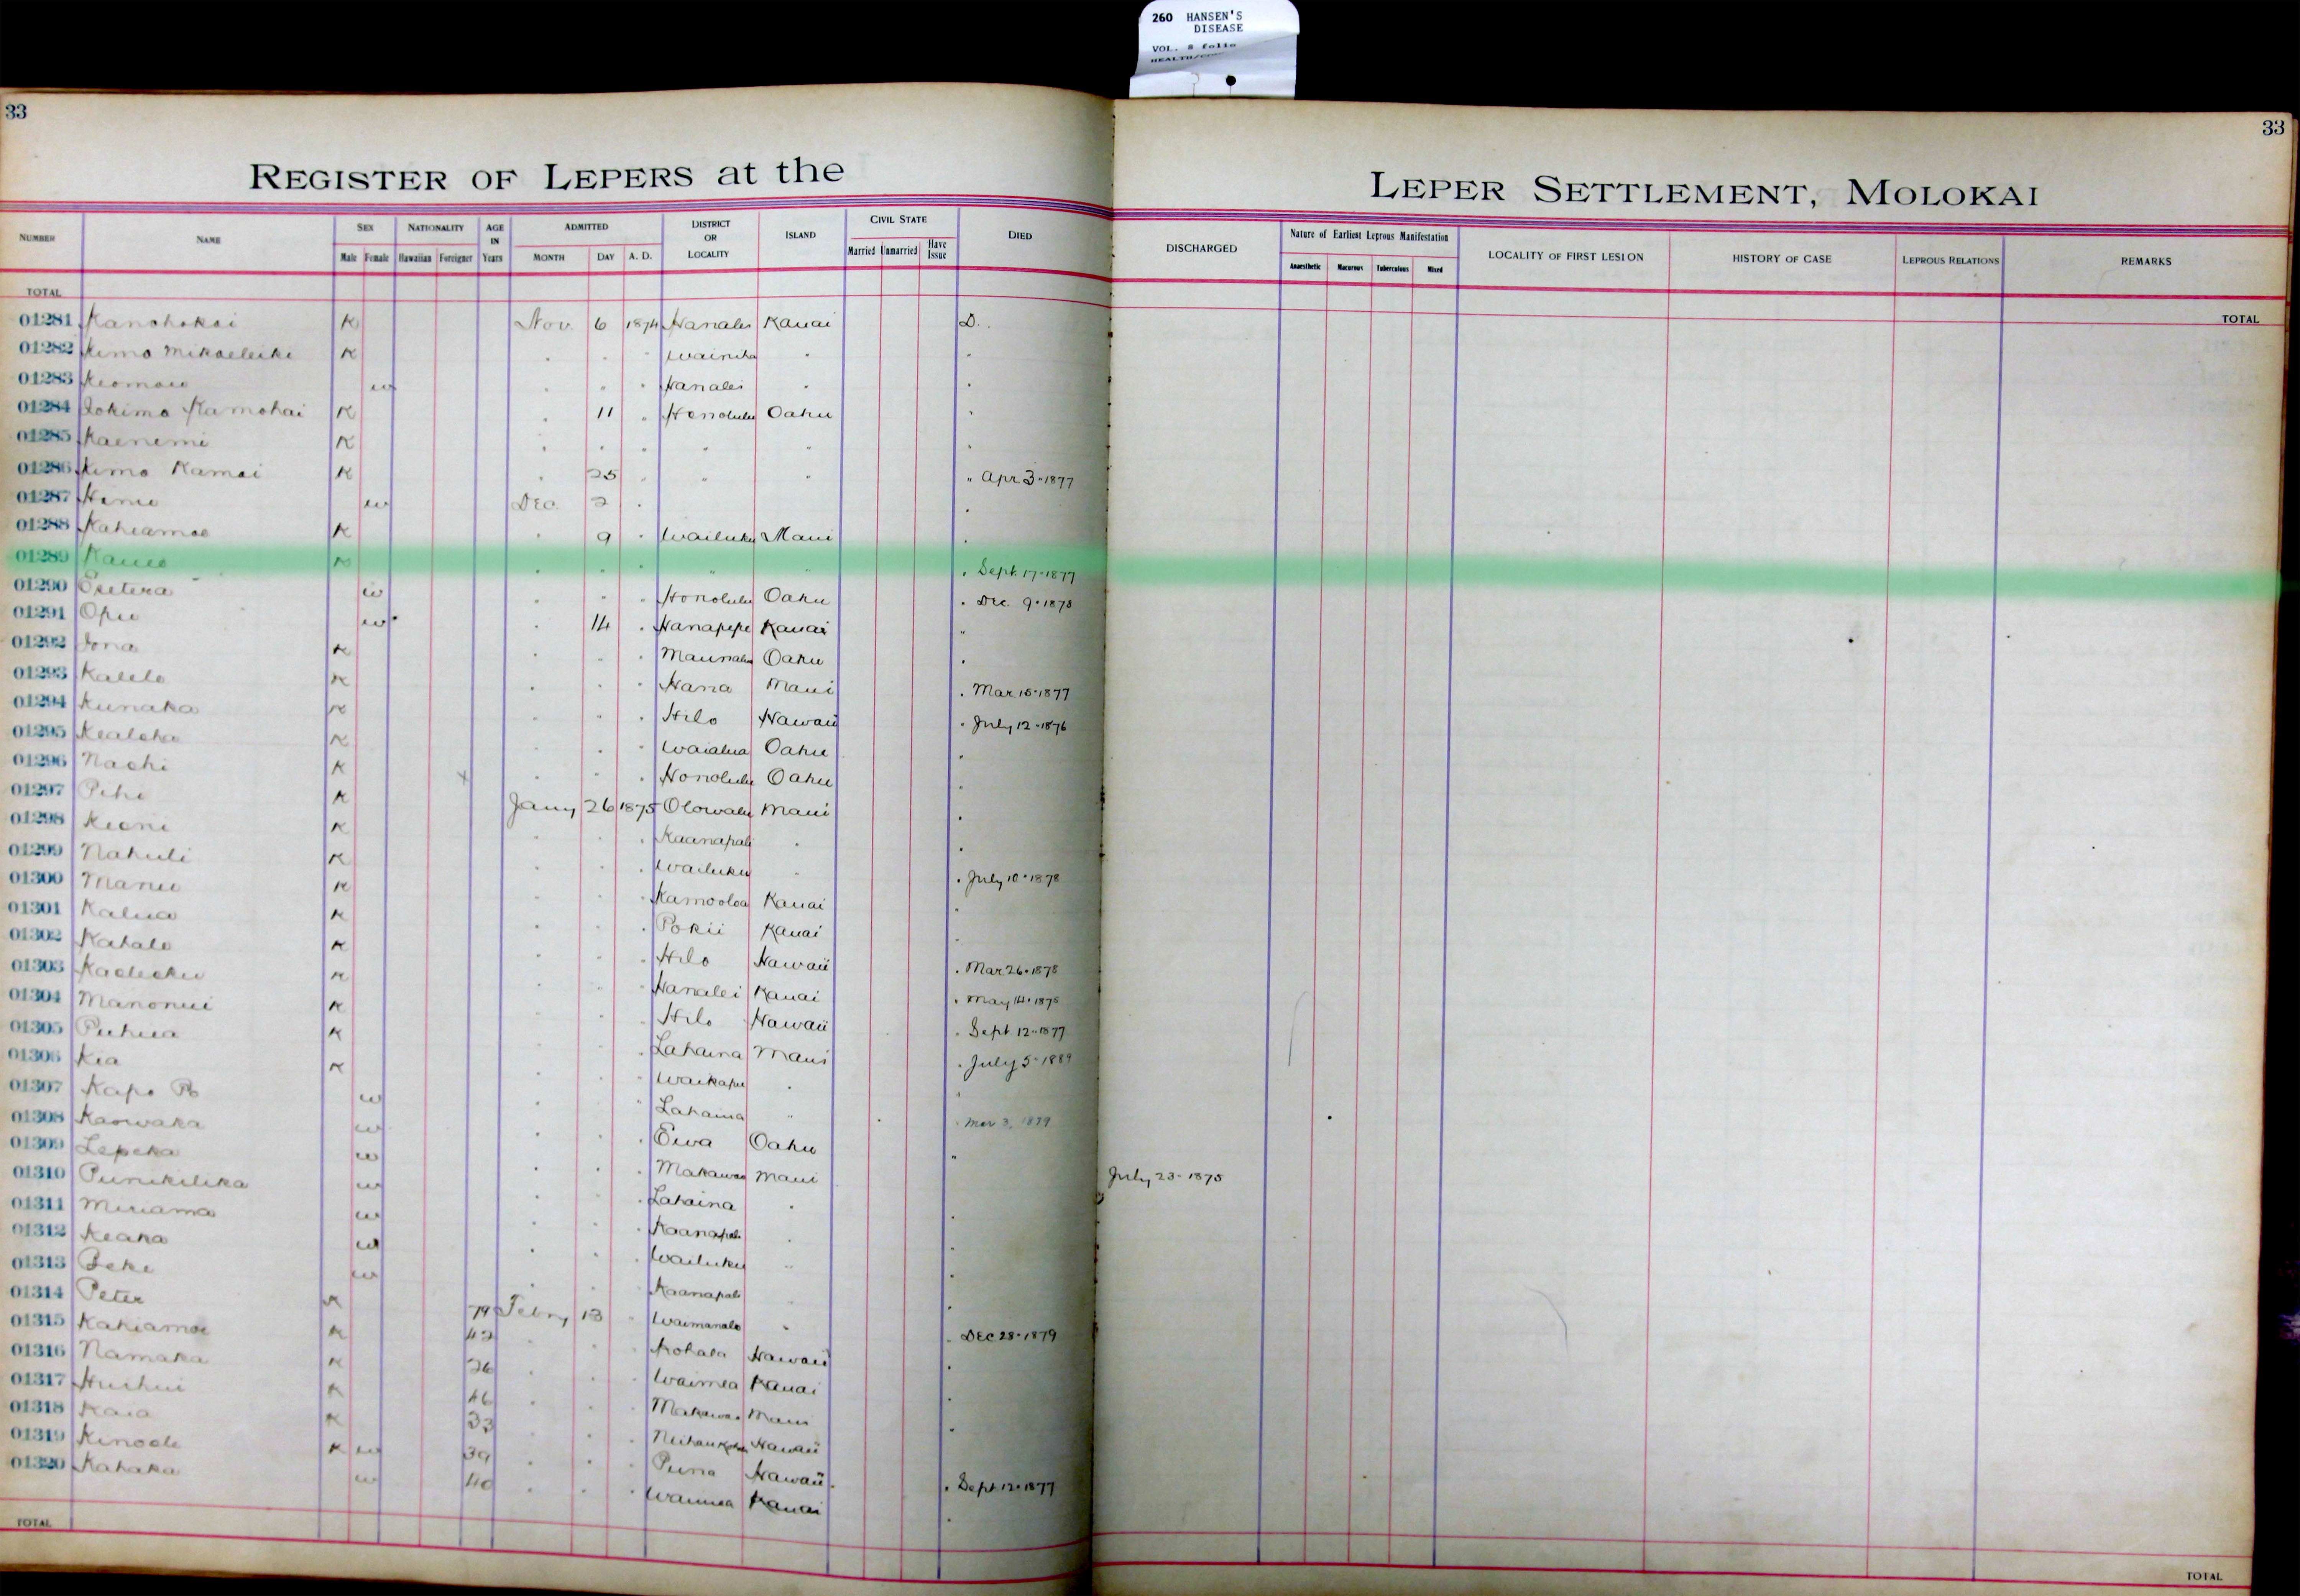 260 HANSEN'S
DISEASE
VOL. 8 folio
33
33
REGISTER OF LEPERS at the
LEPER SETTLEMENT, MOLOKAI
NUMBER NAME SEX NATIONALITY AGE IN Years ADMITTED DISTRICT OR LOCALITY ISLAND CIVIL STATE DIED
Male Female Hawaiian Foreigner MONTH DAY A. D. Married Unmarried Have Issue
DISCHARGED Nature of Earliest Leprous Manifestation LOCALITY OF FIRST LESION HISTORY OF CASE LEPROUS RELATIONS REMARKS
Anaesthetic Macurous Tuberculous Mixed
TOTAL
TOTAL
01281 Kanohokai K Nov. 6 1874 Hanalei Kauai D.
01282 Kimo Mikaeleike K " " " Wainiha " "
01283 Keomau w " " " Hanalei " "
01284 Iokimo Kamohai K " 11 " Honolulu Oahu "
01285 Kaenemi K " " " " " "
01286 Kimo Kamai K " 25 " " " " Apr 3-1877
01287 Hame w Dec 2 " "
01288 Kaheamoe K " 9 " Wailuku Maui "
01289 Kaueo K " " " " " " Sept. 17-1877
01290 Esetera w " " " Honolulu Oahu " Dec. 9-1878
01291 Opu w " 14 " Hanapepe Kauai "
01292 Iona K " " " Maunalua Oahu "
01293 Kalelo K " " " Hana Maui " Mar 15-1877
01294 Kunaka K " " " Hilo Hawaii " July 12-1876
01295 Kealoha K " " " Waialua Oahu "
01296 Naohi K x " " " Honolulu Oahu "
01297 Pihi K Jany 26 1875 Olowalu Maui "
01298 Keoni K " " " Kaanapali " "
01299 Nahuli K " " " Wailuku " " July 10-1878
01300 Manu K " " " Kamooloa Kauai "
01301 Kalua K " " " Pokii Kauai "
01302 Kahalo K " " " Hilo Hawaii " Mar 26-1878
01303 Kaelieku K " " " Hanalei Kauai " May 14-1875
01304 Manonui K " " " Hilo Hawaii " Sept 12-1877
01305 Puhua K " " " Lahaina Maui " July 5-1889
01306 Kia K " " " Waikapu " "
01307 Kapo Po w " " " Lahaina " " Mar 3, 1879
01308 Kaowaka w " " " Ewa Oahu "
01309 Lepeka w " " " Makawao Maui July 23-1875
01310 Punikilika w " " " Lahaina " "
01311 Miriama w " " " Kaanapali " "
01312 Keaka w " " " Wailuku " "
01313 Beke w " " " Kaanapali " "
01314 Peter K 79 Febry 13 " Waimanalo " " DEC 28-1879
01315 Kahiamoe K 42 " " " Kohala Hawaii "
01316 Namaka K 26 " " " Waimea Kauai "
01317 Huihui K 46 " " " Makawao Maui "
01318 Kaia K 33 " " " Hawaii
01319 Kinoole K w 39 " " " Puna Hawaii " Sept 12-1877
01320 Kahaka w 40 " " " Waimea Kauai "
TOTAL
TOTAL